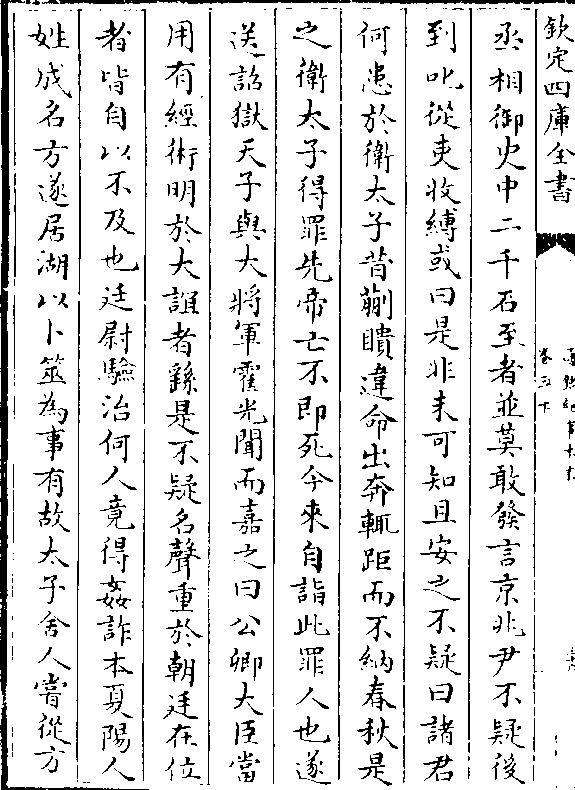 欽定四庫全書
丞相御史中二千石至者並莫敢發言京兆尹不疑後
到叱從吏收縛或曰是非未可知且安之不疑曰諸君
何患於衛太子昔蒯聵違命出奔輒距而不納春秋是
之衛太子得罪先帝亡不即死今來自詣此罪人也遂
送詔獄天子與大將軍霍光聞而嘉之曰公卿大臣當
用有經術明於大誼者繇是不疑名聲重於朝廷在位
者皆自以不及也廷尉驗治何人竟得姦詐本夏陽人
姓成名方遂居湖以卜筮為事有故太子舍人嘗從方